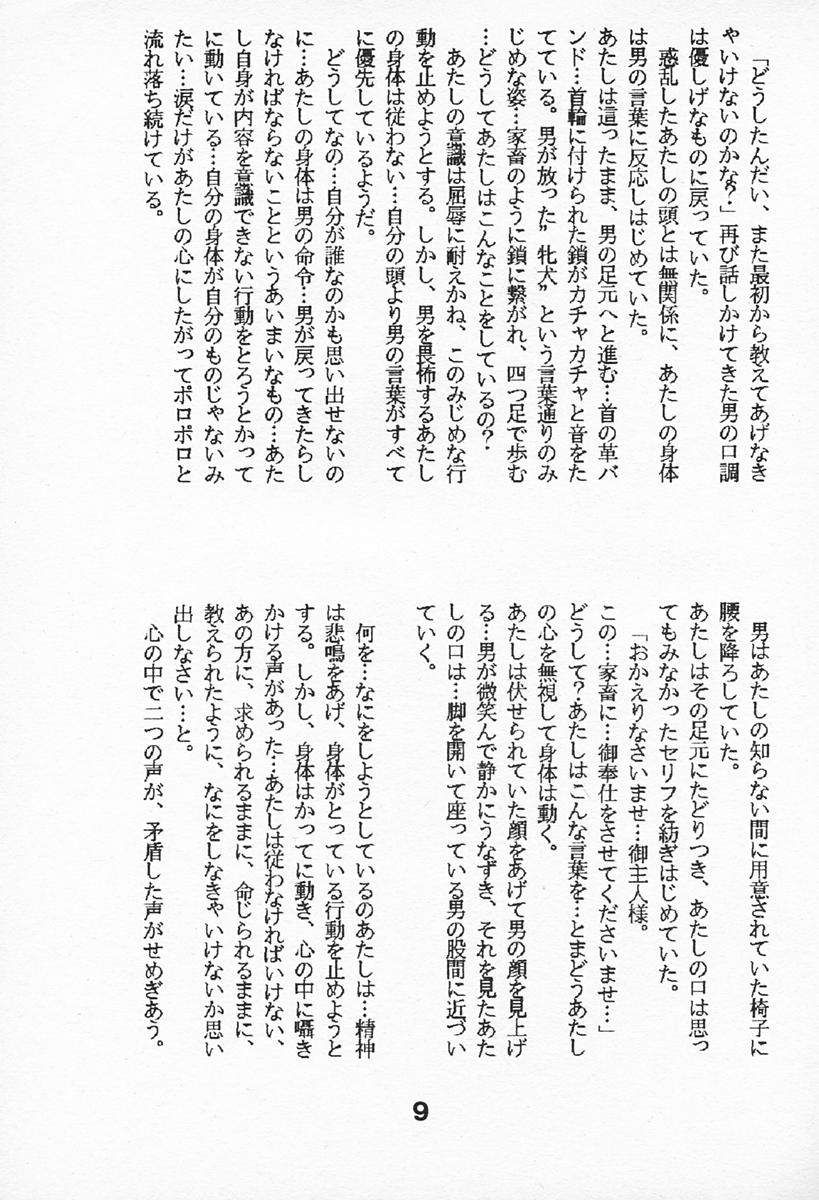 「どうしたんだい、また最初から教えてあげなき
ゃいけないのかな？」再び話しかけてきた男の口調
は優しげなものに戻っていた。
惑乱したあたしの頭とは無関係に、あたしの身体
は男の言葉に反応しはじめていた。
あたしは這ったまま、男の足元へと進む…首の革バ
ンド…首輪に付けられた鎖がカチャカチャと音をた
てている。男が放った”牝犬”という言葉通りのみ
じめな姿…家畜のように鎖に繋がれ、四つ足で歩む
…どうしてあたしはこんなことをしているの？
あたしの意識は屈辱に耐えかね、このみじめな行
動を止めようとする。しかし、男を畏怖するあたし
の身体は従わない…自分の頭より男の言葉がすべて
に優先しているようだ。
どうしてなの…自分が誰なのかも思い出せないの
に…あたしの身体は男の命令…男が戻ってきたらし
なければならないことというあいまいなもの…あた
し自身が内容を意識できない行動をとろうとかって
に動いている…自分の身体が自分のものじゃないみ
たい…涙だけがあたしの心にしたがってポロポロと
流れ落ち続けている。
男はあたしの知らない間に用意されていた椅子に
腰を降ろしていた。
あたしはその足元にたどりつき、あたしの口は思っ
てもみなかったセリフを紡ぎはじめていた。
「おかえりなさいませ…御主人様。
この…家畜に…御奉仕をさせてくださいませ…」
どうして？あたしはこんな言葉を…とまどうあたし
の心を無視して身体は動く。
あたしは伏せられていた顔をあげて男の顔を見上げ
る…男が微笑んで静かにうなずき、それを見たあた
しの口は…脚を開いて座っている男の股間に近づい
ていく。
何を…なにをしようとしているのあたしは…精神
は悲鳴をあげ、身体がとっている行動を止めようと
する。しかし、身体はかってに動き、心の中に囁き
かける声があった…あたしは従わなければいけない、
あの方に、求められるままに、命じられるままに、
教えられたように、なにをしなきゃいけないか思い
出しなさい…と。
心の中で二つの声が、矛盾した声がせめぎあう。
9